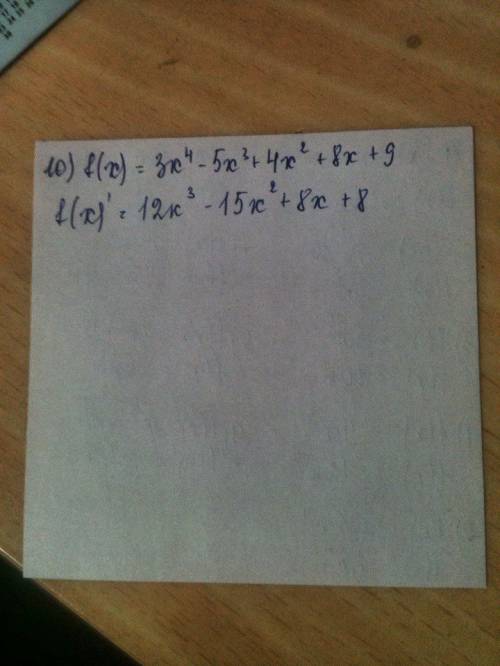 10) f(x) = 3x⁴ - 5x³ + 4x² + 8x + 9
f(x)' = 12x³ - 15x² + 8x + 8